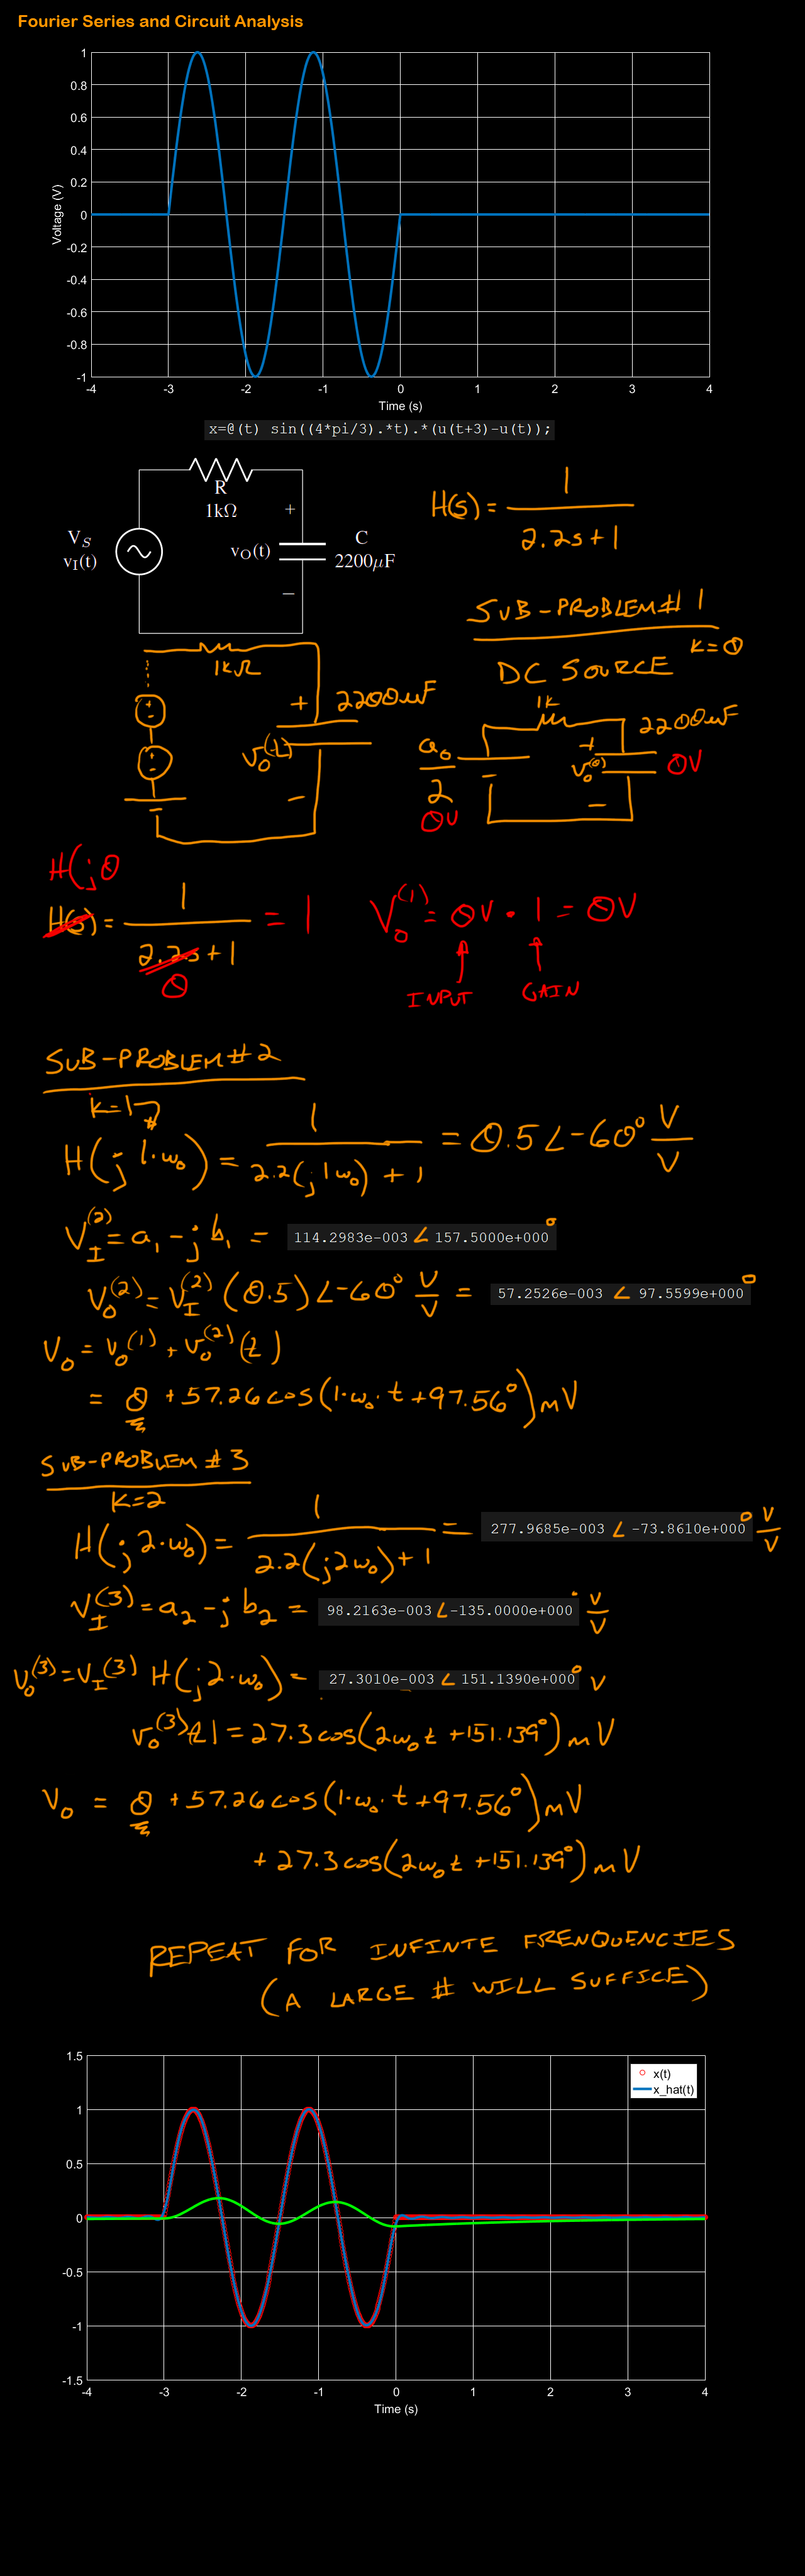 Fourier Series and Circuit Analysis
1
0.8
0.6
0.4
0.2
0
-0.2
-0.4
-0.6
-0.8
-1
Voltage (V)
-4 -3 -2 -1 0 1 2 3 4
Time (s)
x=@(t) sin((4*pi/3).*t).*(u(t+3)-u(t));
R
1kΩ
V_S
v_I(t)
+
v_O(t)
−
C
2200μF
H(s) = 1 / (2.2s+1)
SUB-PROBLEM # 1
K=0
DC SOURCE
1kΩ
+ 2200uF
v_o(t)
−
1K
2200uF
a_0/2
0V
+
v_o^(0)
−
0V
H(j0
H(s) = 1 / (2.2s+1) = 1
0
V_o^(1) = 0V · 1 = 0V
INPUT
GAIN
SUB-PROBLEM # 2
K=1
H(j 1·ω_0) = 1 / (2.2(j1ω_0) + 1) = 0.5∠-60° V/V
V_I^(2) = a_1 - j b_1 = 114.2983e-003 ∠ 157.5000e+000°
V_o^(2) = V_I^(2) (0.5)∠-60° V/V = 57.2526e-003 ∠ 97.5599e+000°
V_o = v_o^(1) + v_o^(2)(t)
= 0 + 57.26 cos(1·ω_0·t + 97.56°) mV
SUB-PROBLEM # 3
K=2
H(j2·ω_0) = 1 / (2.2(j2ω_0) + 1) = 277.9685e-003 ∠ -73.8610e+000° V/V
V_I^(3) = a_2 - j b_2 = 98.2163e-003 ∠ -135.0000e+000° V/V
V_o^(3) = V_I^(3) H(j2·ω_0) = 27.3010e-003 ∠ 151.1390e+000° V
v_o^(3)(t) = 27.3 cos(2ω_0t + 151.139°) mV
V_o = 0 + 57.26 cos(1·ω_0·t + 97.56°) mV
+ 27.3 cos(2ω_0t + 151.139°) mV
REPEAT FOR INFINTE FRENQUENCIES
(A LARGE # WILL SUFFICE)
1.5
1
0.5
0
-0.5
-1
-1.5
x(t)
x_hat(t)
-4 -3 -2 -1 0 1 2 3 4
Time (s)